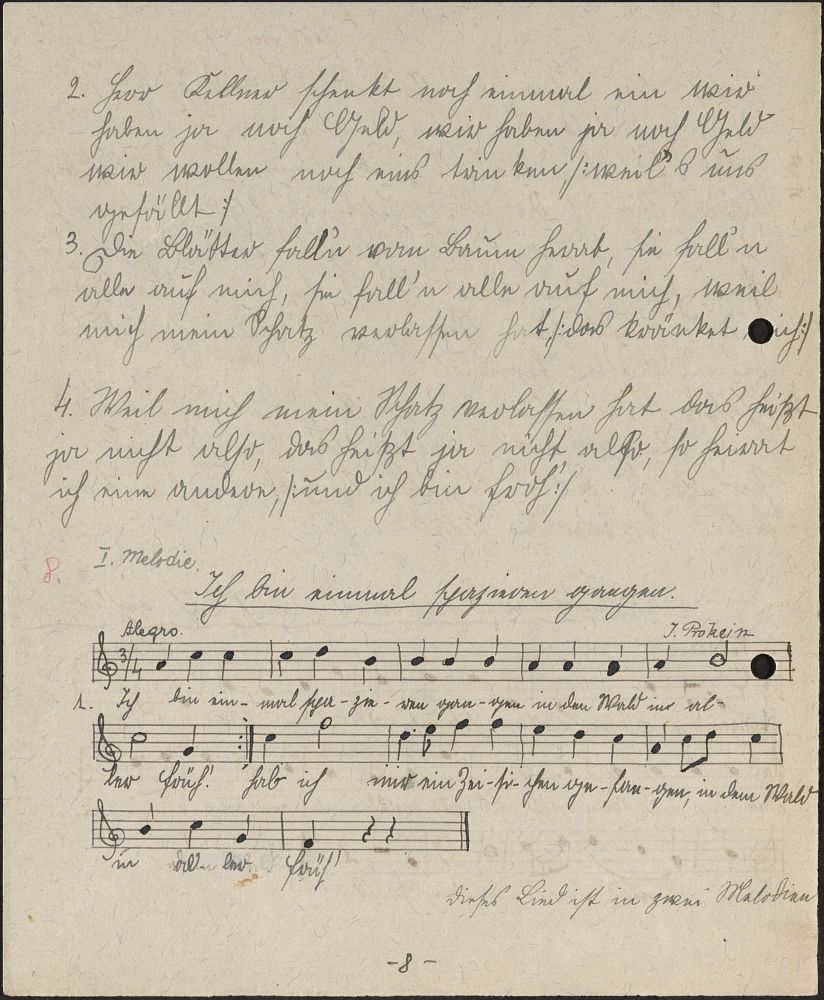 2. Herr Kellner schenkt noch einmal ein wir
haben ja noch Geld, wir haben ja noch Geld
wir wollen noch eins trinken /:weil's uns
gefällt :/
3. Die Blätter fall'n vom Baum herab, sie fall'n
alle auf mich, sie fall'n alle auf mich, weil
mich mein Schatz verlassen hat,/:das kränket ich:/
4. Weil mich mein Schatz verlassen hat das heißt
ja nicht also, das heißt ja nicht also, so heirat
ich eine andere,/:und ich bin froh:/
8.
I. Melodie.
Ich bin einmal spazieren gangen.
Alegro.
3/4
1. Ich bin ein-mal spa-zie-ren gan-gen in den Wald in al-
ler früh! hab ich mir ein Zei-si-chen ge-fan-gen, in dem Wald
in al-ler früh!
dieses Lied ist in zwei Melodien
-8-